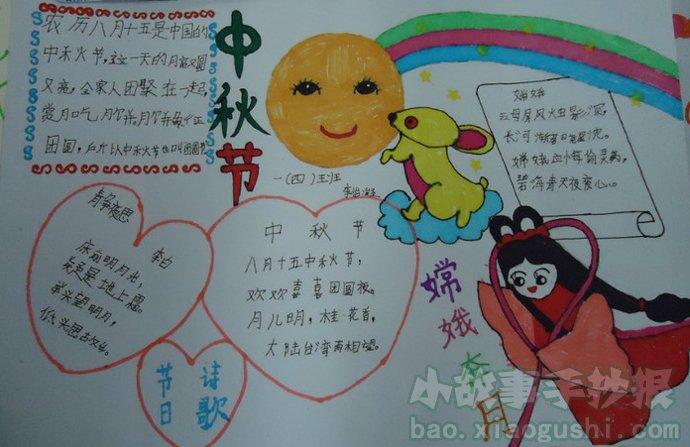 农历八月十五是中国的
中秋节,这一天的月亮又圆
又亮,全家人团聚在一起
赏月吃月饼,月饼象征
团圆,所以人中秋节也叫团圆节
中秋节
一(四)班
嫦娥
云母屏风烛影深,
长河渐落晓星沈。
嫦娥应悔偷灵药,
碧海青天夜夜心。
静夜思
李白
床前明月光,
疑是地上霜。
举头望明月,
低头思故乡。
中秋节
八月十五中秋节,
欢欢喜喜团圆夜。
月儿明,桂花香,
大陆台湾两相望。
节日
诗歌
嫦娥奔月
小故事手抄报
bao.xiaogushi.com